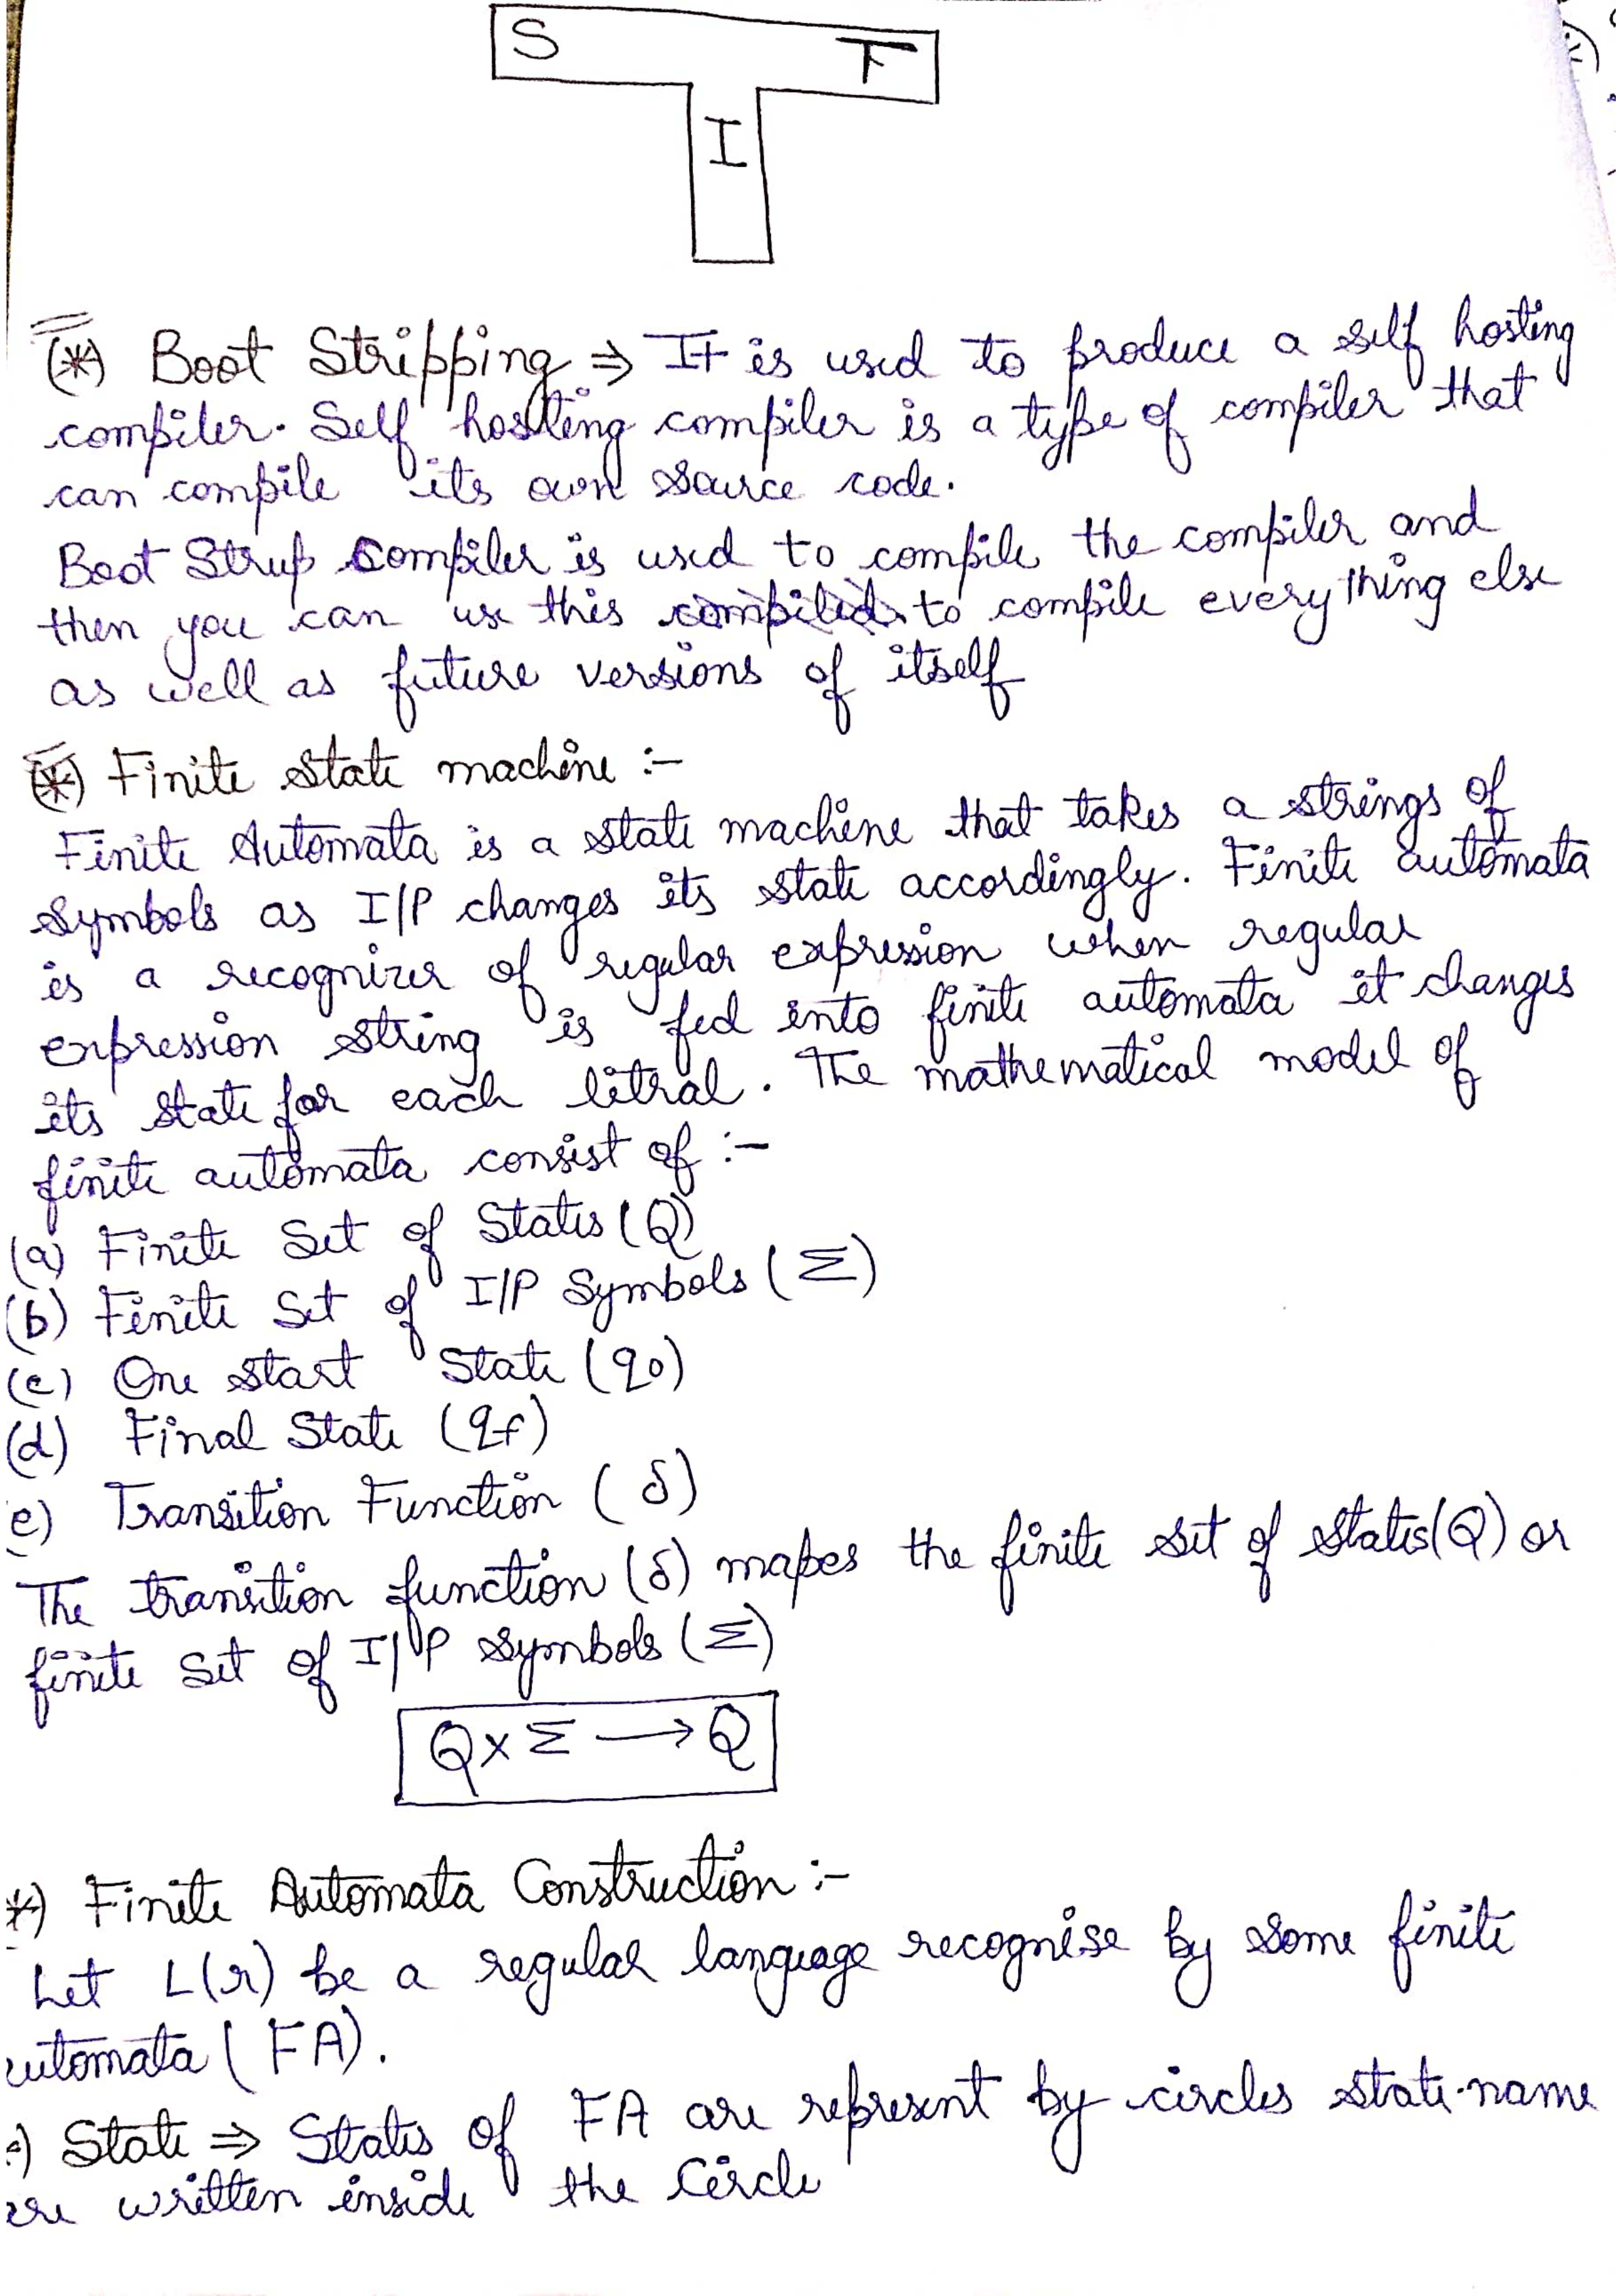 S T
I
(*) Boot Stripping ⇒ It is used to produce a self hosting
compiler. Self hosting compiler is a type of compiler that
can compile its own source code.
Boot Strup compiler is used to compile the compiler and
then you can use this compiled to compile everything else
as well as future versions of itself
(*) Finite state machine :-
Finite Automata is a state machine that takes a strings of
symbols as I/P changes its state accordingly. Finite automata
is a recognizer of regular expression when regular
expression string is fed into finite automata it changes
its state for each litral. The mathematical model of
finite automata consist of :-
(a) Finite Set of States (Q)
(b) Finite Set of I/P Symbols (Σ)
(c) One start State (q0)
(d) Final State (qf)
e) Transition Function (δ)
The transition function (δ) mapes the finite set of states(Q) or
finite set of I/P symbols (Σ)
Q x Σ → Q
*) Finite Automata Construction :-
Let L(r) be a regular language recognise by some finite
utomata (FA).
) State ⇒ States of FA are represent by circles state name
re written inside the Circle